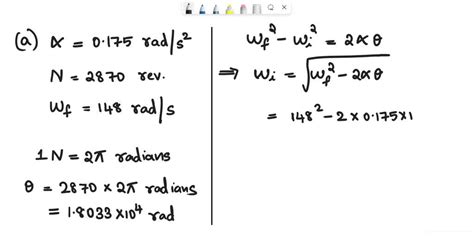 (a) α = 0.175 rad/s²
N = 2870 rev.
ω_f = 148 rad/s
1N = 2π radians
θ = 2870 × 2π radians
= 1.8033×10⁴ rad
ω_f² - ω_i² = 2αθ
⇒ ω_i = √(ω_f² - 2αθ)
= 148² - 2 × 0.175×1